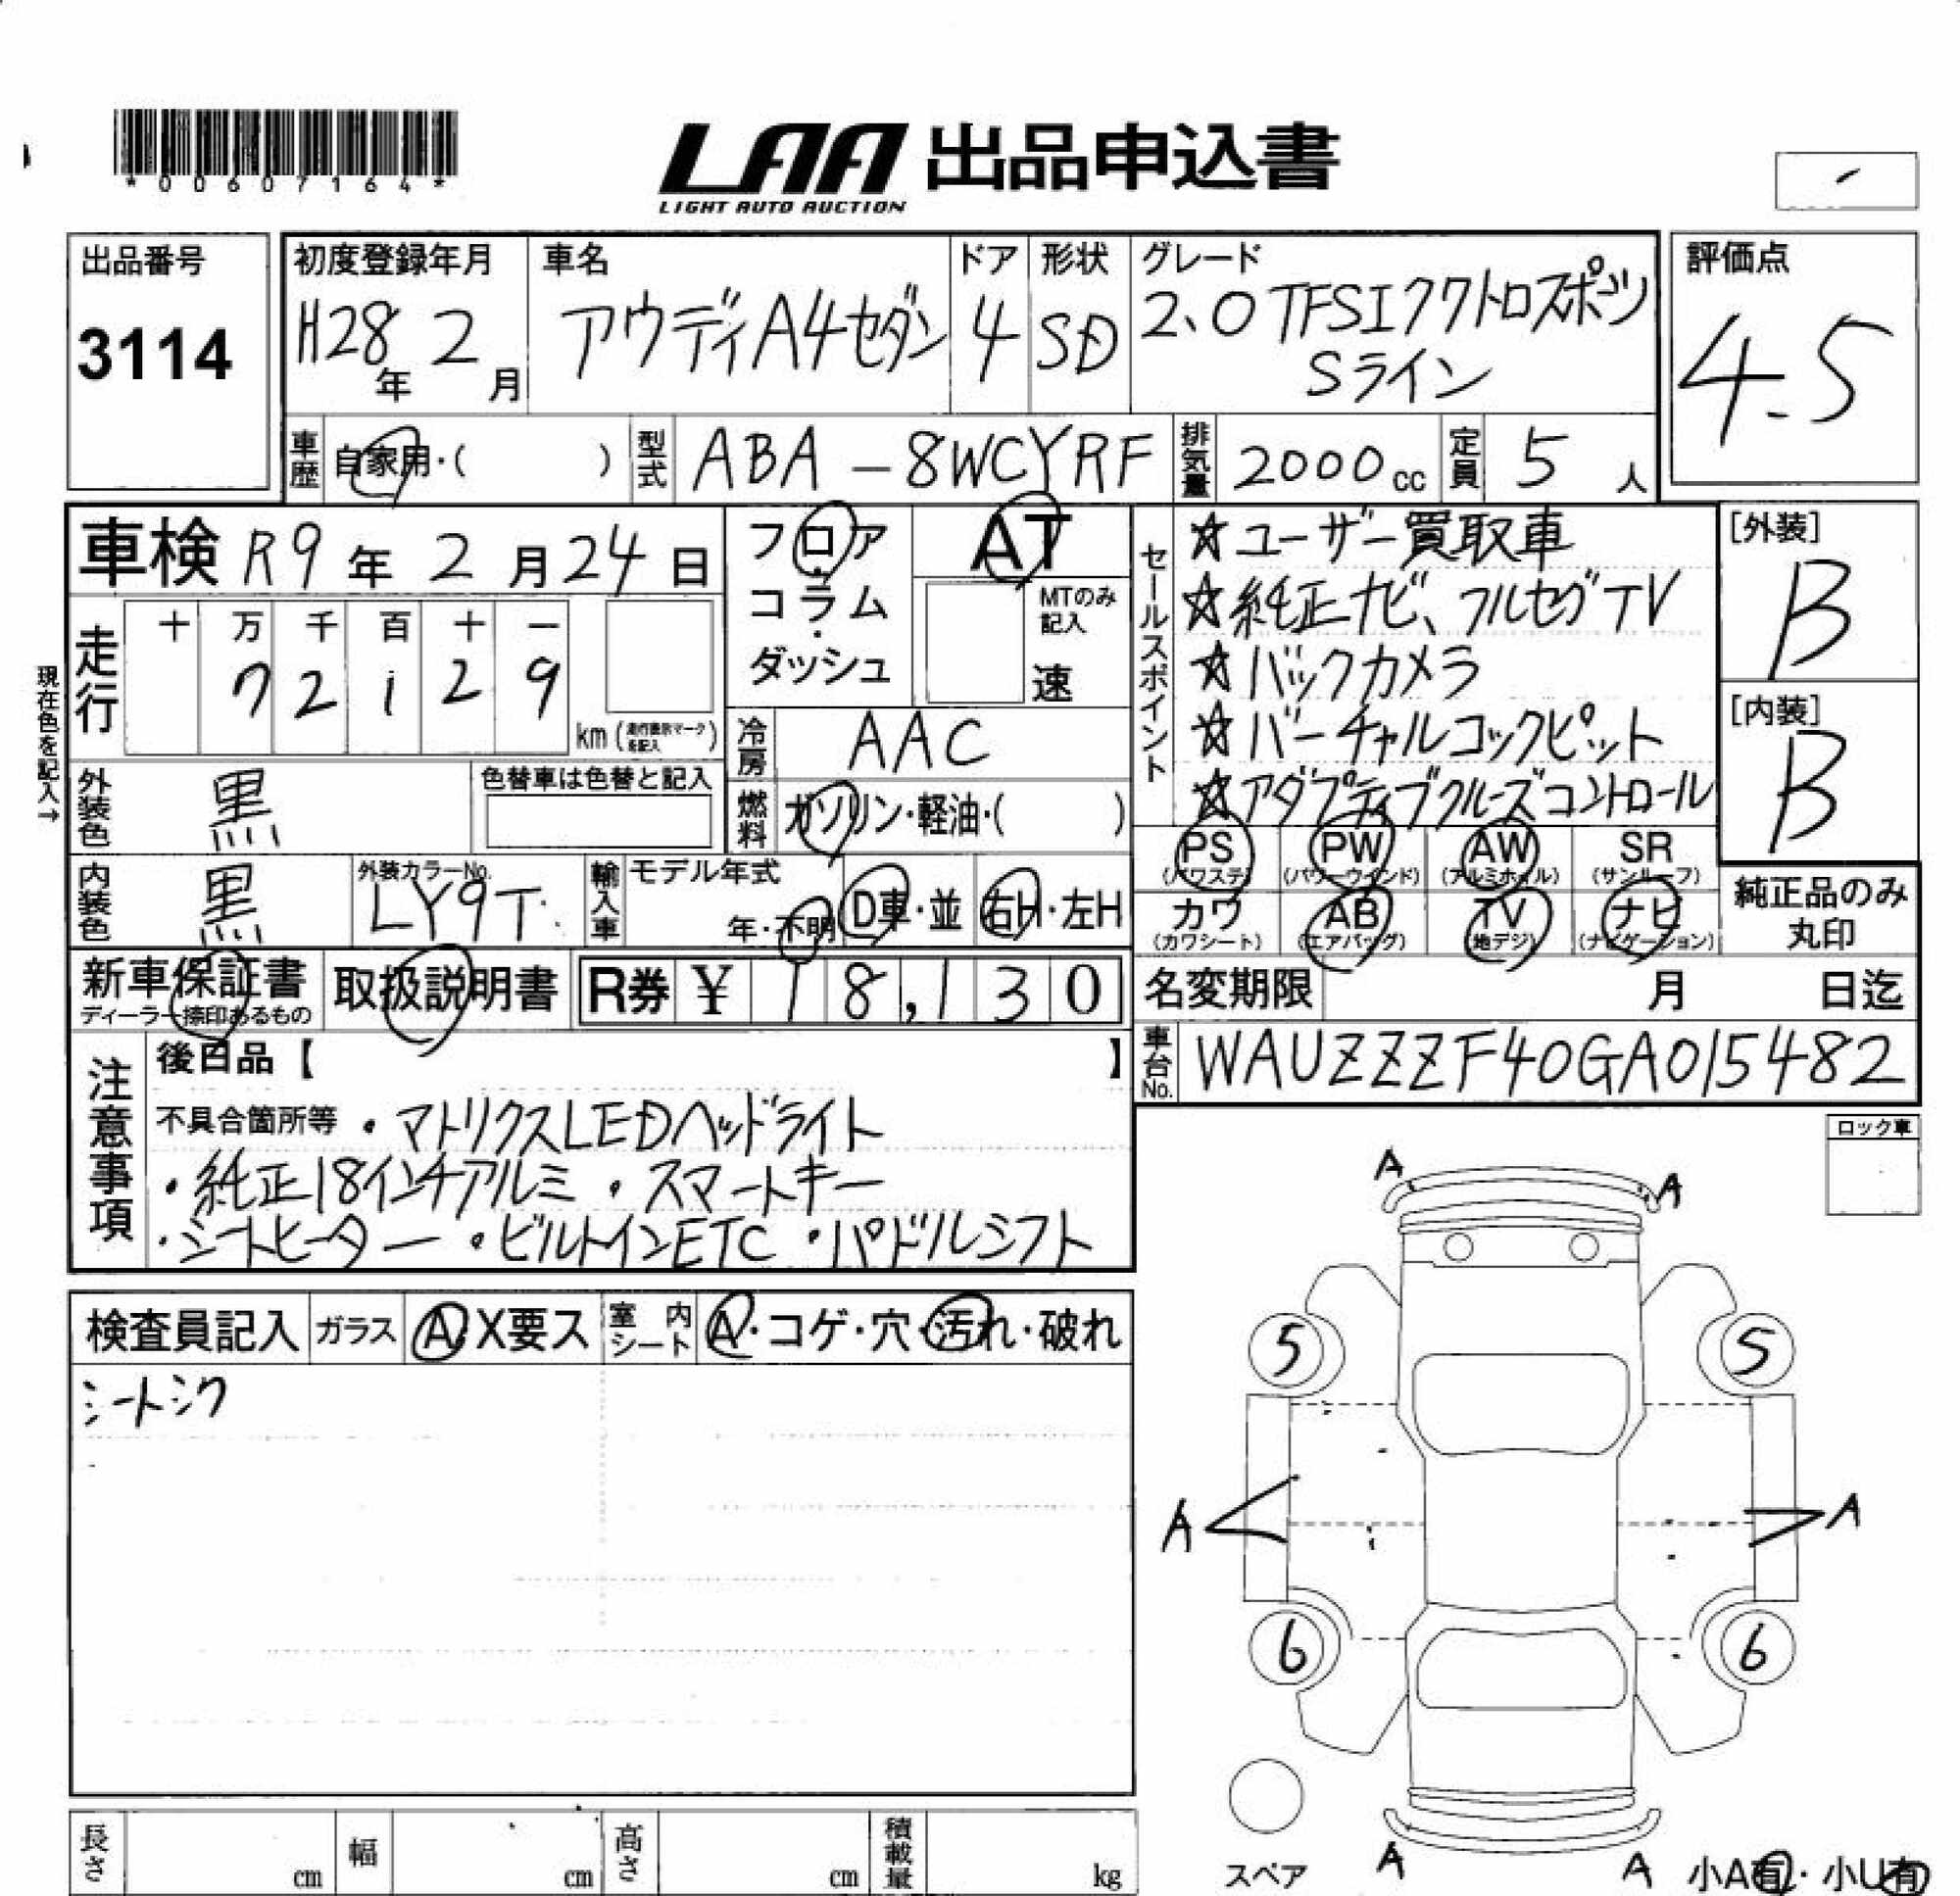 *00607164*
LAA 出品申込書
LIGHT AUTO AUCTION
出品番号
3114
初度登録年月
H28年 2月
車名
アウディA4セダン
ドア
4
形状
SD
グレード
2.0 TFSIクワトロスポーツ
Sライン
評価点
4.5
車歴 自家用・( )
型式 ABA-8WCYRF
排気量 2000cc
定員 5人
車検 R9年 2月24日
フロア・コラム・ダッシュ
AT
MTのみ記入
速
セールスポイント
☆ユーザー買取車
☆純正ナビ、フルセグTV
☆バックカメラ
☆バーチャルコックピット
☆アダプティブクルーズコントロール
[外装]
B
[内装]
B
現在色を記入→
走行
十 万 千 百 十 一
7 2 1 2 9
km(走行表示マークを記入)
冷房 AAC
外装色 黒
色替車は色替と記入
燃料 ガソリン・軽油・( )
内装色 黒
外装カラーNo.
LY9T
輸入車 モデル年式
年・不明
D車・並
右H・左H
PS (パワステ)
PW (パワーウインド)
AW (アルミホイル)
SR (サンルーフ)
カワ (カワシート)
AB (エアバッグ)
TV (地デジ)
ナビ (ナビゲーション)
純正品のみ
丸印
新車保証書
ディーラー捺印あるもの
取扱説明書
R券 ¥ 18,130
名変期限 月 日迄
車台No. WAUZZZF40GA015482
注意事項
後日品【 】
不具合箇所等 ・マトリクスLEDヘッドライト
・純正18インチアルミ ・スマートキー
・シートヒーター ・ビルトインETC ・パドルシフト
ロック車
検査員記入 ガラス A X要ス 室内シート A・コゲ・穴・汚れ・破れ
シートシワ
A A
5 5
A A
6 6
A A
スペア
小A有・小U有
長さ cm 幅 cm 高さ cm 積載量 kg